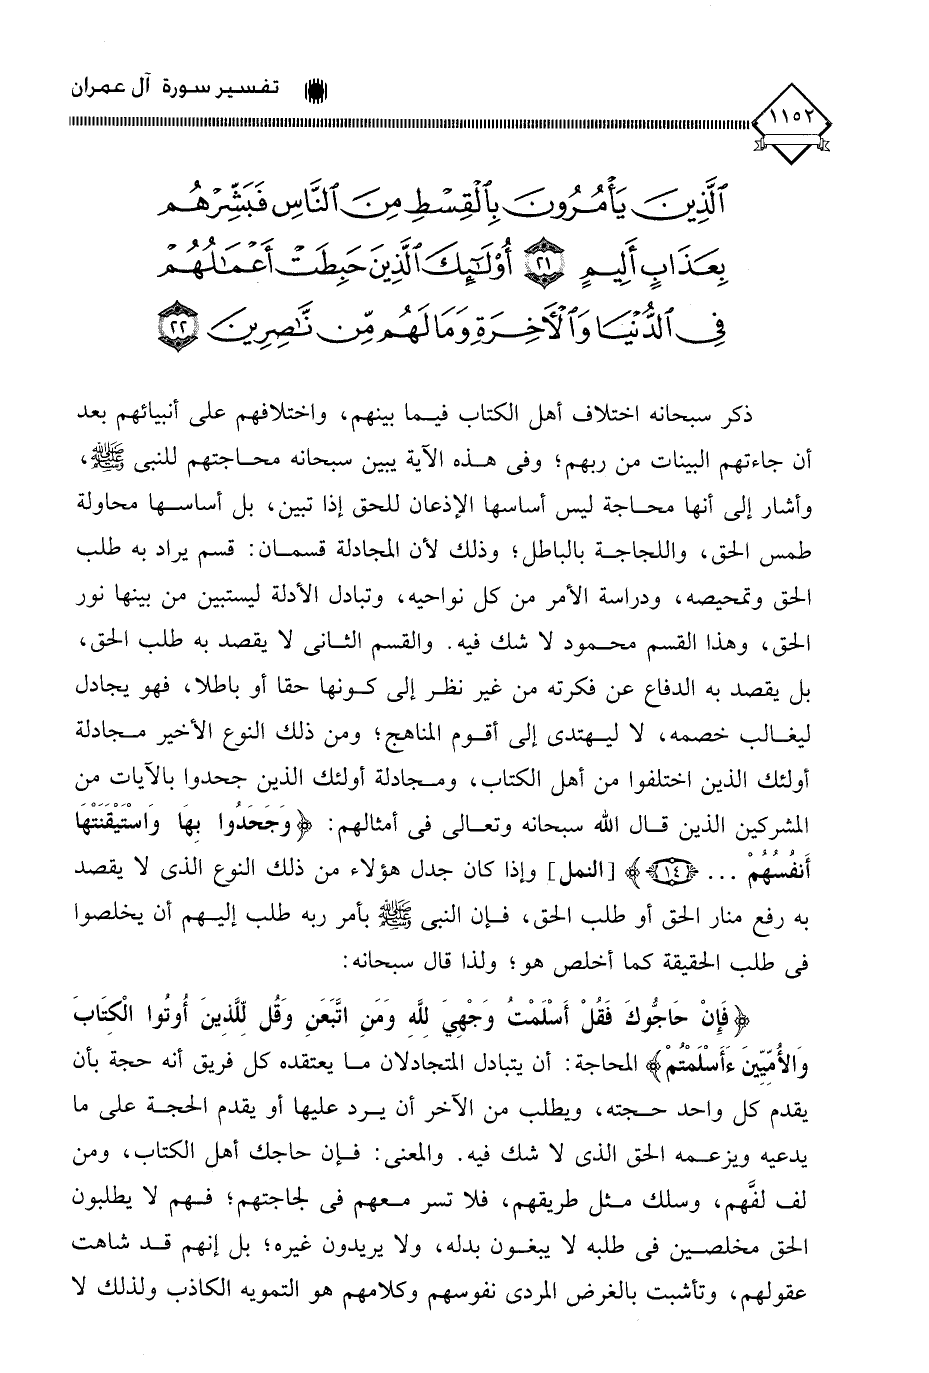 تفسير سورة آل عمران
١١٥٢
ٱلَّذِينَ يَأْمُرُونَ بِٱلْقِسْطِ مِنَ ٱلنَّاسِ فَبَشِّرْهُم
بِعَذَابٍ أَلِيمٍ ﴿٢١﴾ أُوْلَٰٓئِكَ ٱلَّذِينَ حَبِطَتْ أَعْمَٰلُهُمْ
فِى ٱلدُّنْيَا وَٱلْأَخِرَةِ وَمَا لَهُم مِّن نَّٰصِرِينَ ﴿٢٢﴾
ذكر سبحانه اختلاف أهل الكتاب فيما بينهم، واختلافهم على أنبيائهم بعد
أن جاءتهم البينات من ربهم؛ وفى هذه الآية يبين سبحانه محاجتهم للنبى ﷺ،
وأشار إلى أنها محاجة ليس أساسها الإذعان للحق إذا تبين، بل أساسها محاولة
طمس الحق، واللجاجة بالباطل؛ وذلك لأن المجادلة قسمان: قسم يراد به طلب
الحق وتمحيصه، ودراسة الأمر من كل نواحيه، وتبادل الأدلة ليستبين من بينها نور
الحق، وهذا القسم محمود لا شك فيه. والقسم الثانى لا يقصد به طلب الحق،
بل يقصد به الدفاع عن فكرته من غير نظر إلى كونها حقا أو باطلا، فهو يجادل
ليغالب خصمه، لا ليهتدى إلى أقوم المناهج؛ ومن ذلك النوع الأخير مجادلة
أولئك الذين اختلفوا من أهل الكتاب، ومجادلة أولئك الذين جحدوا بالآيات من
المشركين الذين قال الله سبحانه وتعالى فى أمثالهم: ﴿وَجَحَدُوا بِهَا وَاسْتَيْقَنَتْهَا
أَنفُسُهُمْ ... ﴿١٤﴾﴾ [النمل] وإذا كان جدل هؤلاء من ذلك النوع الذى لا يقصد
به رفع منار الحق أو طلب الحق، فإن النبى ﷺ بأمر ربه طلب إليهم أن يخلصوا
فى طلب الحقيقة كما أخلص هو؛ ولذا قال سبحانه:
﴿فَإِنْ حَاجُّوكَ فَقُلْ أَسْلَمْتُ وَجْهِيَ لِلَّهِ وَمَنِ اتَّبَعَنِ وَقُل لِّلَّذِينَ أُوتُوا الْكِتَابَ
وَالأُمِّيِّينَ ءَأَسْلَمْتُمْ﴾ المحاجة: أن يتبادل المتجادلان ما يعتقده كل فريق أنه حجة بأن
يقدم كل واحد حجته، ويطلب من الآخر أن يرد عليها أو يقدم الحجة على ما
يدعيه ويزعمه الحق الذى لا شك فيه. والمعنى: فإن حاجك أهل الكتاب، ومن
لف لفَّهم، وسلك مثل طريقهم، فلا تسر معهم فى لجاجتهم؛ فهم لا يطلبون
الحق مخلصين فى طلبه لا يبغون بدله، ولا يريدون غيره؛ بل إنهم قد شاهت
عقولهم، وتأشبت بالغرض المردى نفوسهم وكلامهم هو التمويه الكاذب ولذلك لا